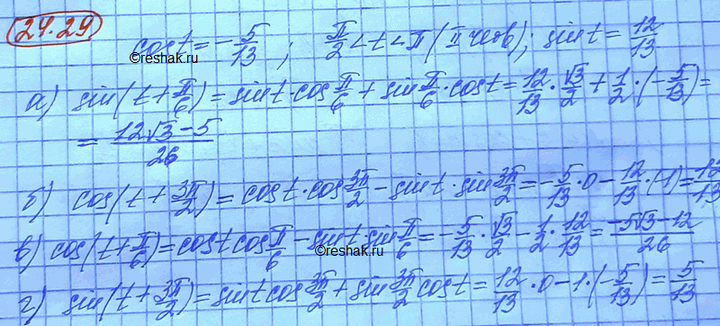 24.29
cos t = -5/13 ; π/2 < t < π (II четв) ; sin t = 12/13
©reshak.ru
а) sin(t + π/6) = sin t · cos π/6 + sin π/6 · cos t = 12/13 · √3/2 + 1/2 · (-5/13) =
= (12√3 - 5)/26
б) cos(t + 3π/2) = cos t · cos 3π/2 - sin t · sin 3π/2 = -5/13 · 0 - 12/13 · (-1) = 12/13
в) cos(t + π/6) = cos t cos π/6 - sin t · sin π/6 = -5/13 · √3/2 - 1/2 · 12/13 = (-5√3 - 12)/26
©reshak.ru
г) sin(t + 3π/2) = sin t cos 3π/2 + sin 3π/2 cos t = 12/13 · 0 - 1 · (-5/13) = 5/13